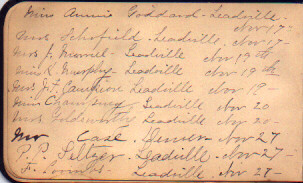 Miss Annie Goddard - Leadville.
Nov 17 -
Miss Schofield - Leadville, Nov 17 -
Mrs J. Merrill - Leadville Nov 19th
Miss K. Murphy - Leadville Nov 19th
Leadville Nov 19 -
Miss Leadville Nov 20
Miss Goldsworthy Leadville Nov 20 -
Mr Case. Denver Nov 27
P. P. Seltzer. Leadville. Nov 27 -
F. Leadville - Nov 27 -